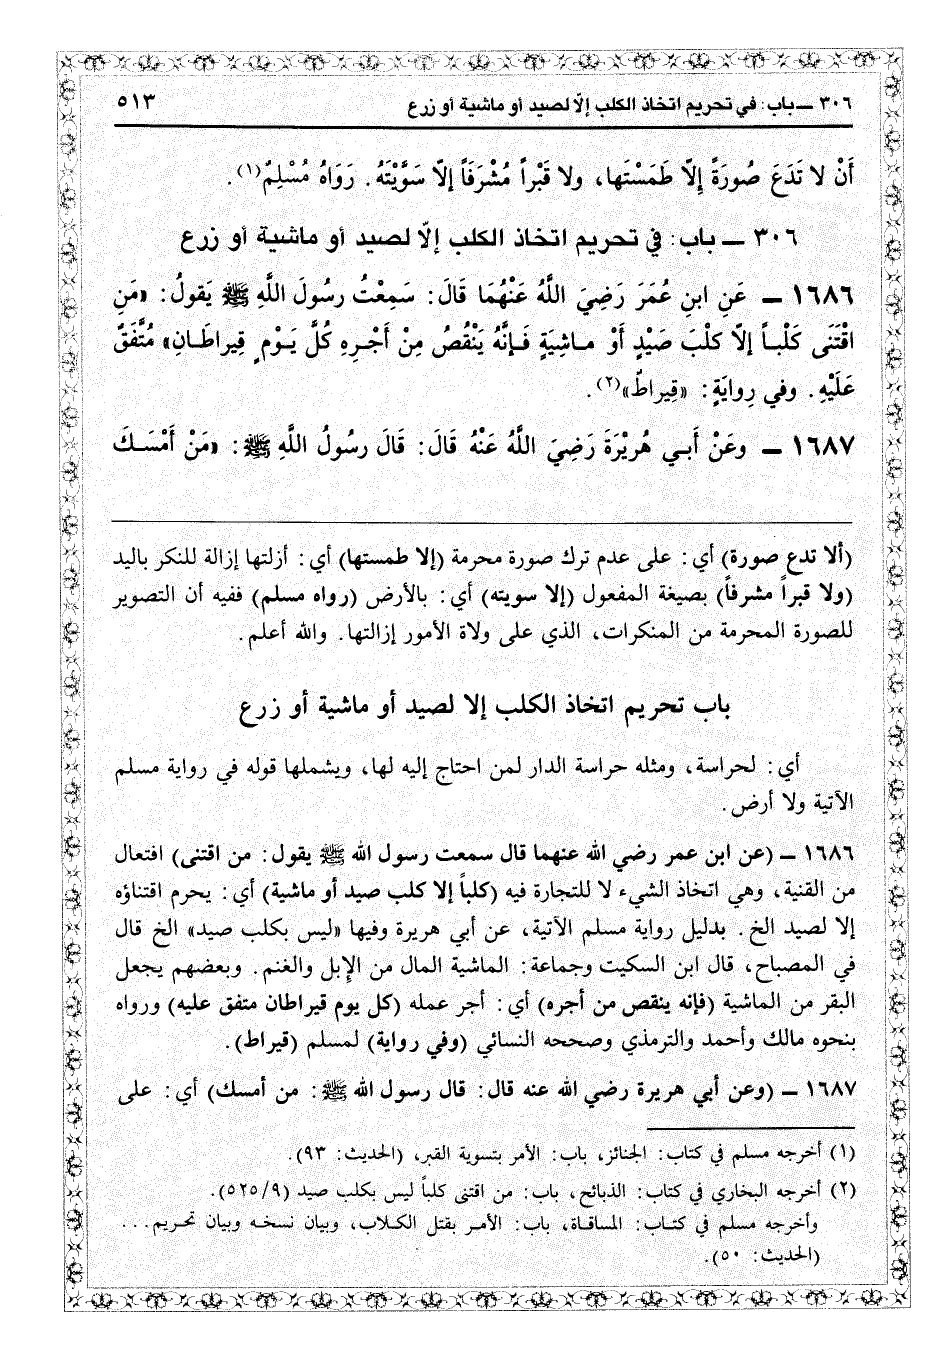 ٣٠٦ ـ باب: في تحريم اتخاذ الكلب إلا لصيد أو ماشية أو زرع ٥١٣
أَنْ لا تَدَعَ صُورَةً إلاّ طَمَسْتَها، ولا قَبْراً مُشْرَفَاً إلاّ سَوَّيْتَهُ. رَوَاهُ مُسْلِمٌ(١).
٣٠٦ ـ باب: في تحريم اتخاذ الكلب إلاّ لصيد أو ماشية أو زرع
١٦٨٦ ـ عَنِ ابنِ عُمَرَ رَضِيَ اللَّهُ عَنْهُمَا قَالَ: سَمِعْتُ رسُولَ اللَّهِ ﷺ يَقولُ: «مَنِ
اقْتَنَى كَلْبـاً إلاّ كلْبَ صَيْدٍ أَوْ مـاشِيَةٍ فَـإنَّهُ يَنْقُصُ مِنْ أَجْرِهِ كُلَّ يَـوْمٍ قِيراطَـانِ» مُتَّفَقٌ
عَلَيْهِ. وفي رِوايَةٍ: «قِيراطٌ»(٢).
١٦٨٧ ـ وعَنْ أَبـي هُرِيْرَةَ رَضِيَ اللَّهُ عَنْهُ قَالَ: قَالَ رسُولُ اللَّهِ ﷺ: «مَنْ أَمْسَـكَ
(ألا تدع صورة) أي: على عدم ترك صورة محرمة (إلا طمستها) أي: أزلتها إزالة للنكر باليد
(ولا قبراً مشرفاً) بصيغة المفعول (إلا سويته) أي: بالأرض (رواه مسلم) ففيه أن التصوير
للصورة المحرمة من المنكرات، الذي على ولاة الأمور إزالتها. والله أعلم.
باب تحريم اتخاذ الكلب إلا لصيد أو ماشية أو زرع
أي: لحراسة، ومثله حراسة الدار لمن احتاج إليه لها، ويشملها قوله في رواية مسلم
الآتية ولا أرض.
١٦٨٦ ـ (عن ابن عمر رضي الله عنهما قال سمعت رسول الله ﷺ يقول: من اقتنى) افتعال
من القنية، وهي اتخاذ الشيء لا للتجارة فيه (كلباً إلا كلب صيد أو ماشية) أي: يحرم اقتناؤه
إلا لصيد الخ. بدليل رواية مسلم الآتية، عن أبي هريرة وفيها «ليس بكلب صيد» الخ قال
في المصباح، قال ابن السكيت وجماعة: الماشية المال من الإبل والغنم. وبعضهم يجعل
البقر من الماشية (فإنه ينقص من أجره) أي: أجر عمله (كل يوم قيراطان متفق عليه) ورواه
بنحوه مالك وأحمد والترمذي وصححه النسائي (وفي رواية) لمسلم (قيراط).
١٦٨٧ ـ (وعن أبي هريرة رضي الله عنه قال: قال رسول الله ﷺ: من أمسك) أي: على
(١) أخرجه مسلم في كتاب: الجنائز، باب: الأمر بتسوية القبر، (الحديث: ٩٣).
(٢) أخرجه البخاري في كتاب: الذبائح، باب: من اقتنى كلباً ليس بكلب صيد (٥٢٥/٩).
وأخرجه مسلم في كتـاب: المساقـاة، باب: الأمـر بقتل الكـلاب، وبيان نسخـه وبيان تحريـم...
(الحديث: ٥٠).